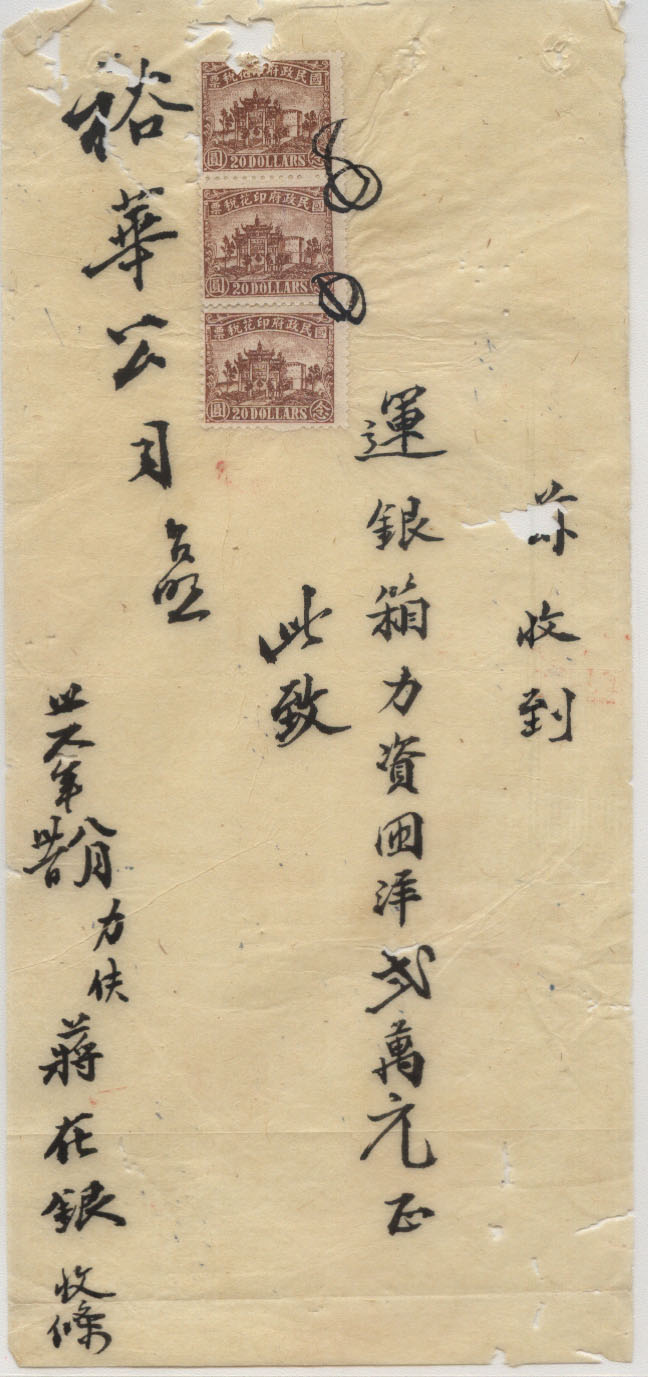 茲收到
運銀箱力資囯洋弍萬元正
此致
裕華公司 台照
卅六年八月卅日 力伕 蔣在銀 收條
國民政府印花稅票
念圓
20 DOLLARS
國民政府印花稅票
念圓
20 DOLLARS
國民政府印花稅票
念圓
20 DOLLARS